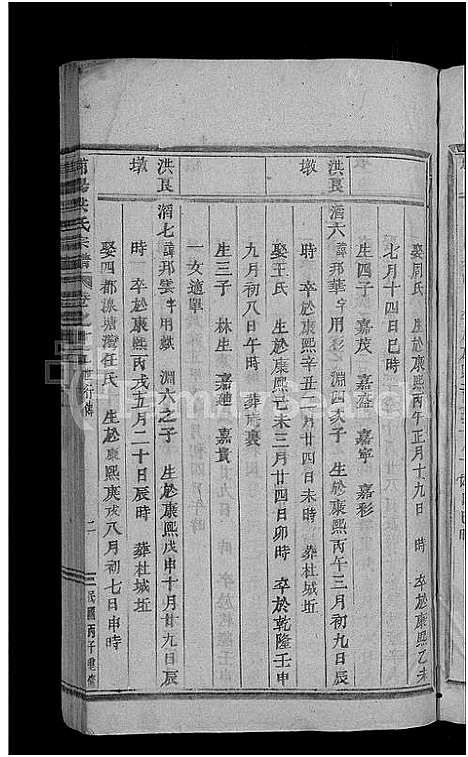 娶周氏 生於康熙丙午正月十九日 時 卒於康熙乙未
七月十四日巳時
生四子 嘉茂 嘉 嘉寧 嘉彩
洪艮墩
滔六 諱邦華字用彩 淵四次子 生於康熙丙午三月初九日辰
時 卒於康熙辛丑 月廿四日未時 葬杜城坵
娶王氏 生於康熙己未三月廿四日卯時 卒於乾隆壬申
九月初八日午時 葬 裏
生三子 林生 嘉璉 嘉貴
一女適單
洪艮墩
滔七 諱邦雲字用 淵六之子 生於康熙戊申十月廿九日辰
時 卒於康熙丙戌五月二十日辰時 葬杜城坵
娶四都 塘灣任氏 生於康熙庚戌八月初七日申時
洪氏宗譜 世行傳 二 民國丙子重修